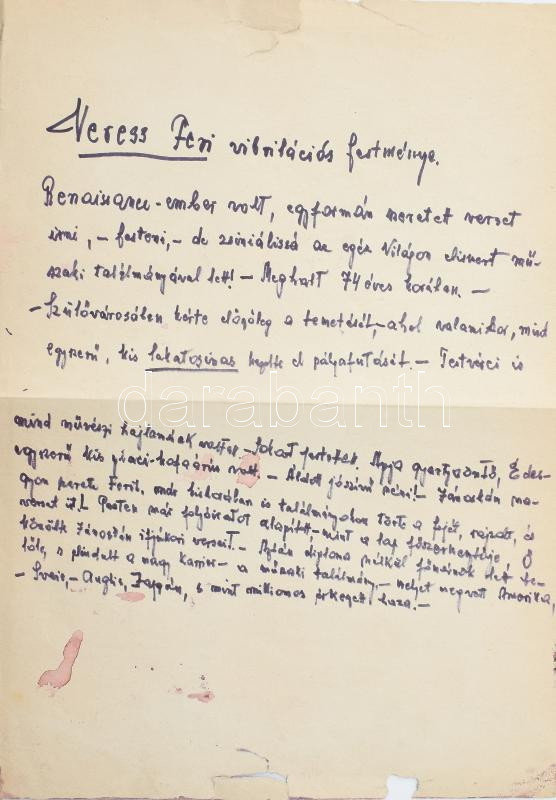 Veress Feri vibrilációs festménye.
Renaissance-ember volt, egyformán szeretet verset
írni, - festeni, - de zseniálissá az egész Világon elismert mű-
szaki találmányával lett! - Meghalt 74 éves korában. -
- Szülővárosában kérte előzőleg a temetését, - ahol valamikor, mind
egyszerű, kis lakatosinas kezdte el pályafutását. - Testvérei is
darabanth
mind művészi hajlamúak voltak - Sokat festettek. Apja gyertyaöntő, Édes-
egyszerű kis piaci-kofa volt. - Áldott jószívű néni! - Jánoskám na-
gyon szerette Ferit, már is találmányokon törte a fejét, rajzolt, és
verset írt! Pesten már folyóiratot alapított - mint a lap főszerkesztője, Ő
közölte Jánoskám ifjúkori verseit. - Aztán diploma nélkül főmérnök lett be-
lőle, s elindult a nagy karrier - a műszaki találmány, - melyet megvett Amerika,
- Svájc, - Anglia, Japán, s mint milliomos érkezett haza. -